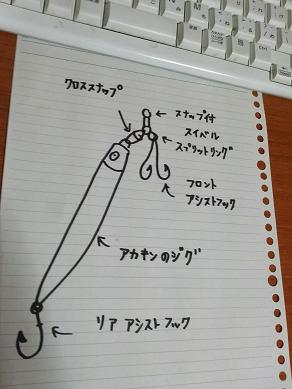 クロススナップ
スナップ付
スイベル
スプリットリング
フロント
アシストフック
アカキンのジグ
リア アシストフック